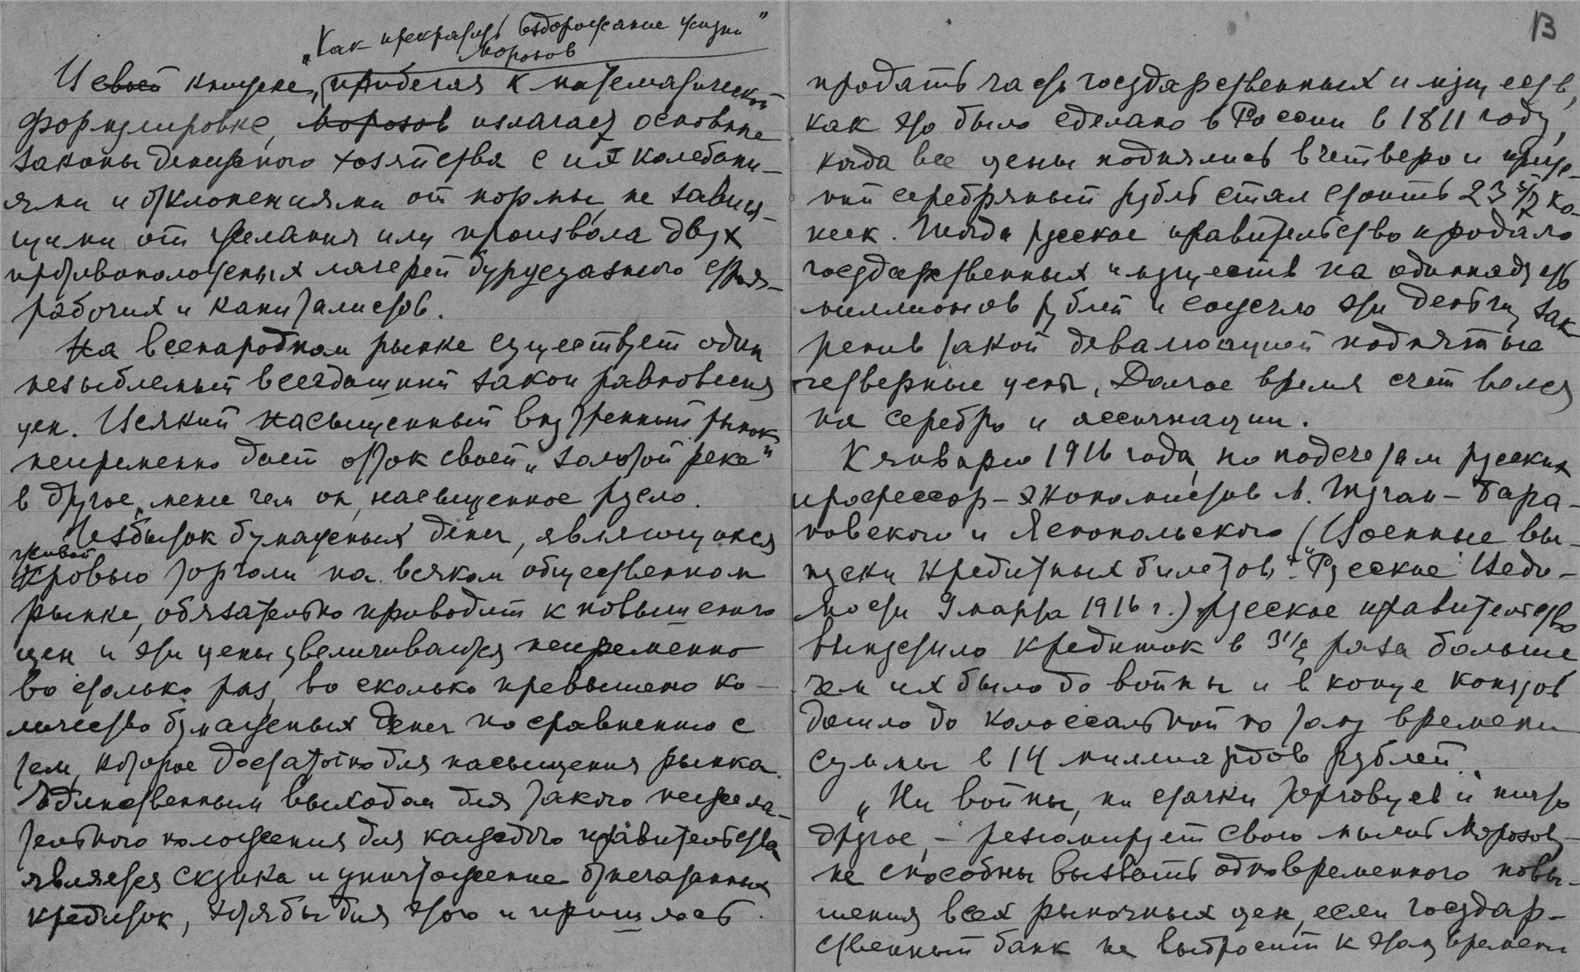 „Как прекратить вздорожание жизни"
Морозов
В своей книге, прибегая к математической
формулировке, Морозов излагает основные
законы денежного хозяйства с их колебани-
ями и отклонениями от нормы, не завися-
щими от желания или произвола двух
противоположных лагерей буржуазного строя-
рабочих и капиталистов.
На всенародном рынке существует один
незыблемый всегдашний закон равновесия
цен. Всякий насыщенный внутренний рынок
непременно дает отток своей „золотой реке"
в другое, менее чем он, насыщенное русло.
Избыток бумажных денег, являющихся
живой
кровью торговли на всяком общественном
рынке, обязательно приводит к повышению
цен и эти цены увеличиваются непременно
во столько раз, во сколько превышено ко-
личество бумажных денег по сравнению с
тем, которое достаточно для насыщения рынка.
Единственным выходом для такого нежела-
тельного положения для каждого правительства
является скупка и уничтожение отпечатанных
кредиток, хотя бы для этого и пришлось
13
продать часть государственных имуществ,
как это было сделано в России в 1811 году,
когда все цены поднялись вчетверо и
серебряный рубль стал стоить 23 ко-
пеек. Тогда русское правительство продало
государственных имуществ на одиннадцать
миллионов рублей и сожгло эти деньги, зак-
репив такой девальвацией поднятые
четверные цены. Долгое время счет велся
на серебро и ассигнации.
К январю 1916 года, по подсчетам русских
профессор-экономистов М. Туган-Бара-
новского и Яснопольского (Военные вы-
пуски кредитных билетов" - „Русские Ведо-
мости 9 марта 1916 г.) русское правительство
выпустило кредиток в 3½ раза больше
чем их было до войны и в конце концов
дошло до колоссальной по тому времени
суммы в 14 миллиардов рублей.
„Ни войны, ни стачки торговцев и ничто
другое, - резюмирует свою мысль Морозов, -
не способны вызвать одновременного повы-
шения всех рыночных цен, если государ-
ственный банк не выбросит к этому времени